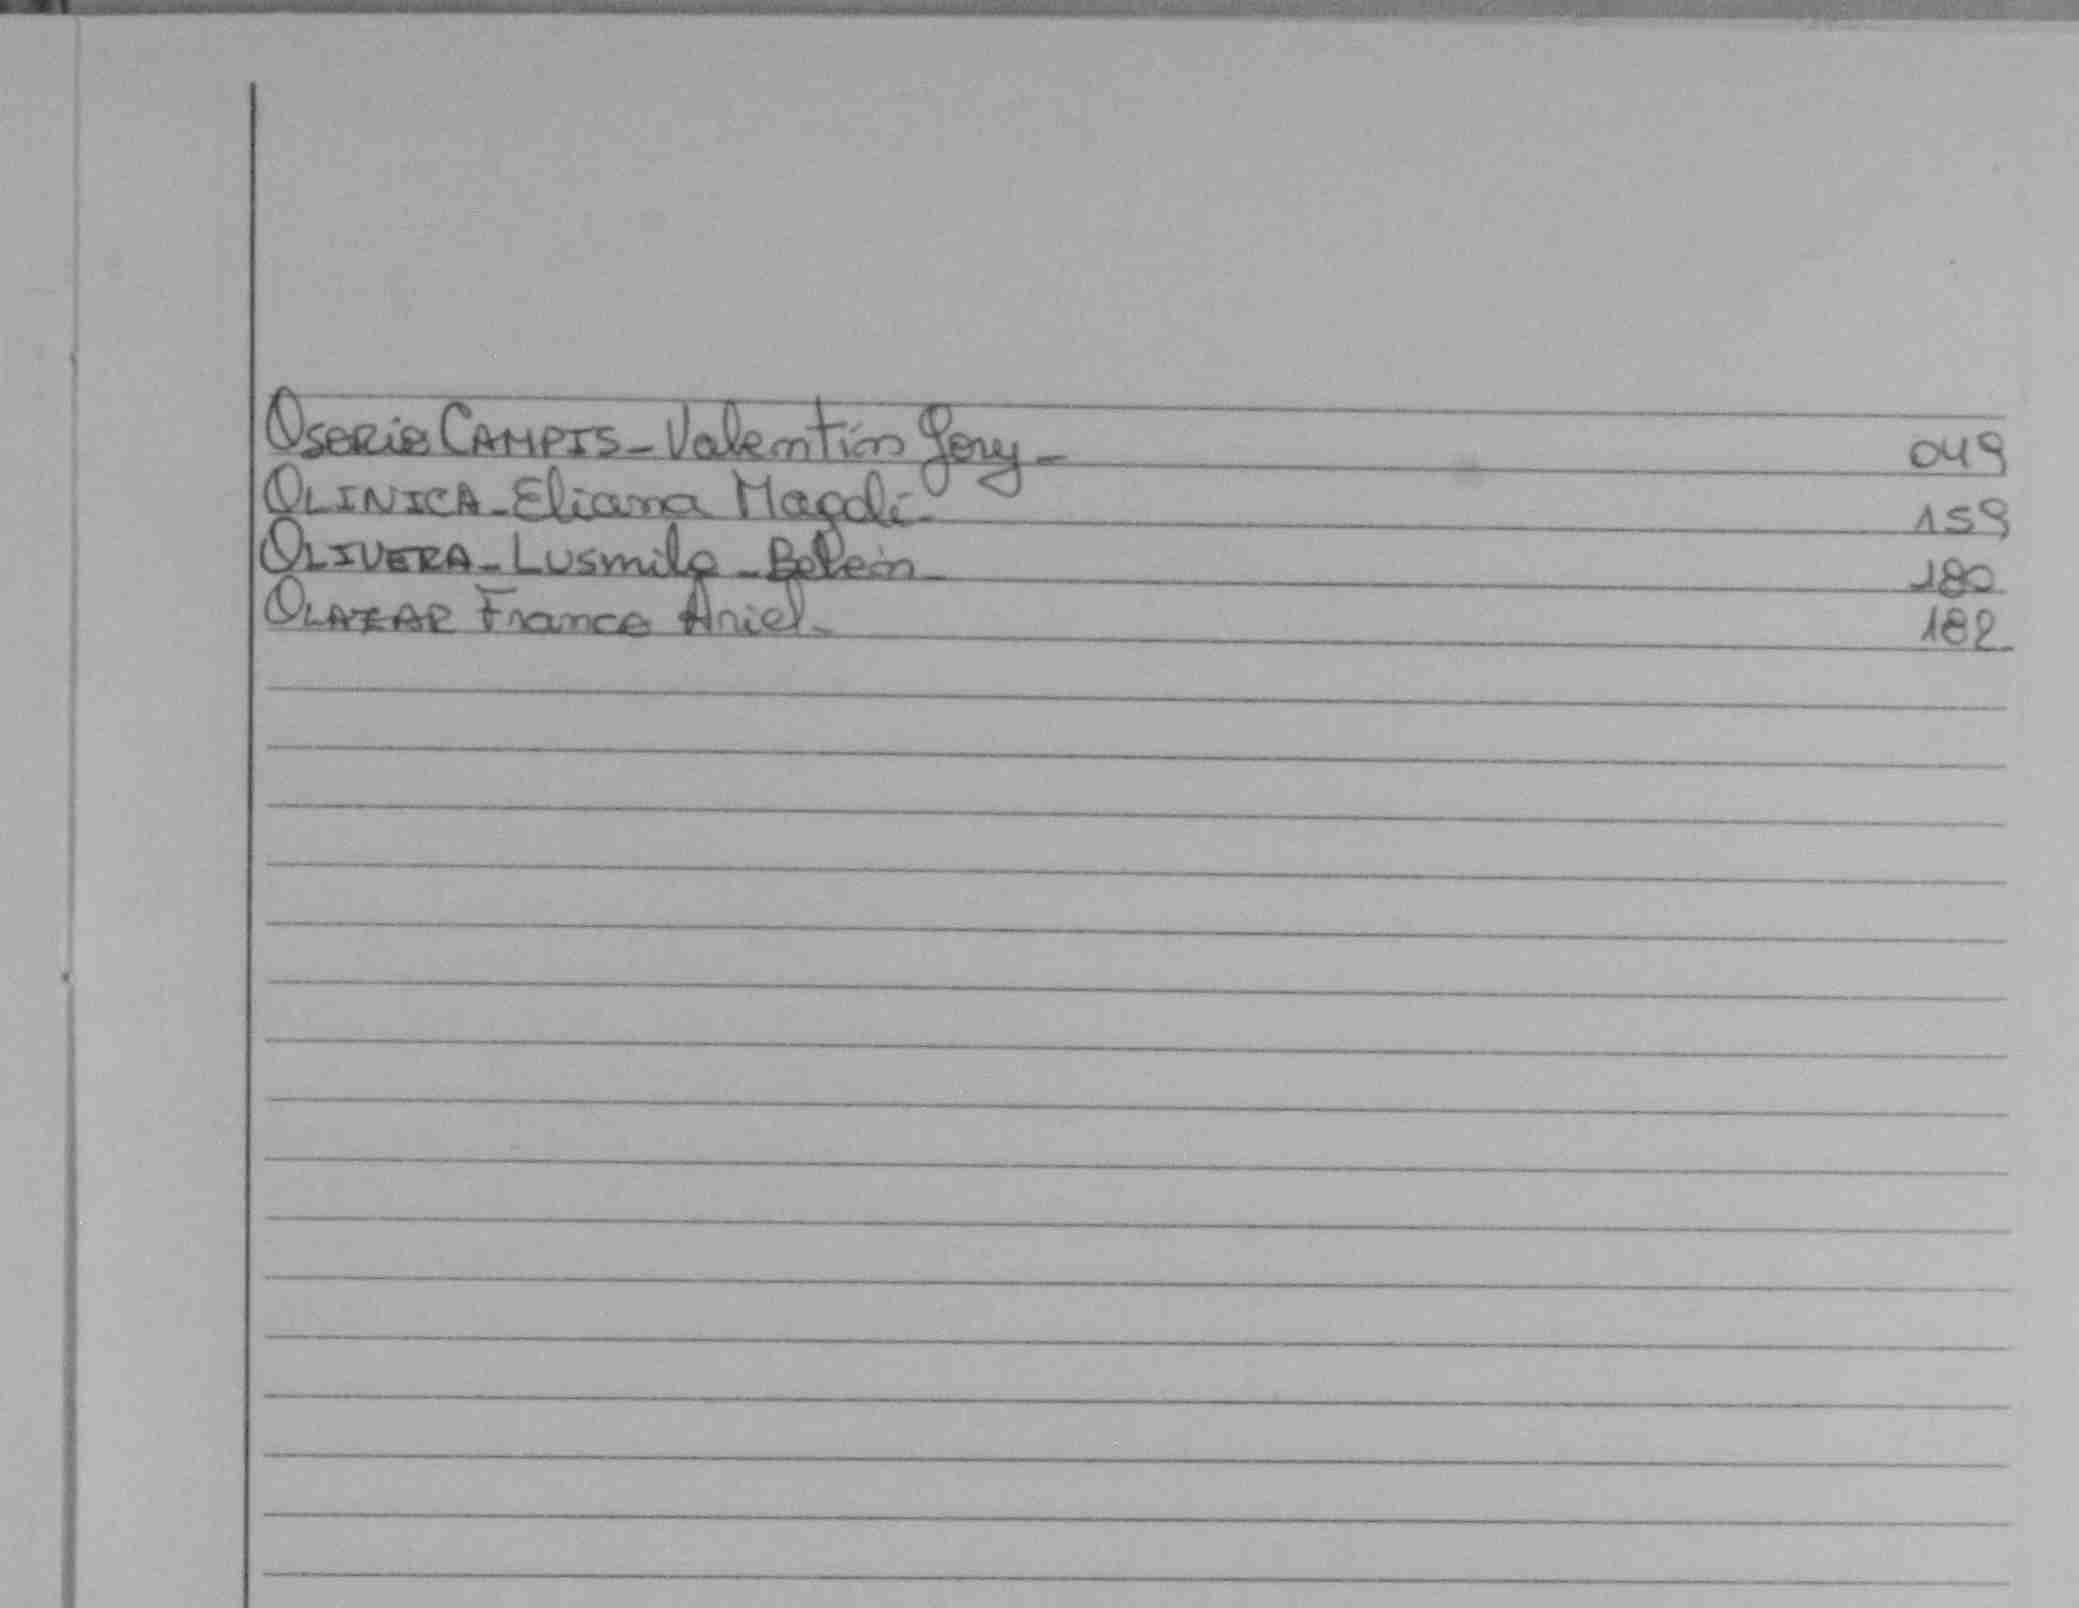 OSERIE CAMPIS - Valentín Jery - 049
OLINICA - Eliana Magali - 159
OLIVERA - Lusmila - Belén - 180
OLAZAR Franco Ariel - 182